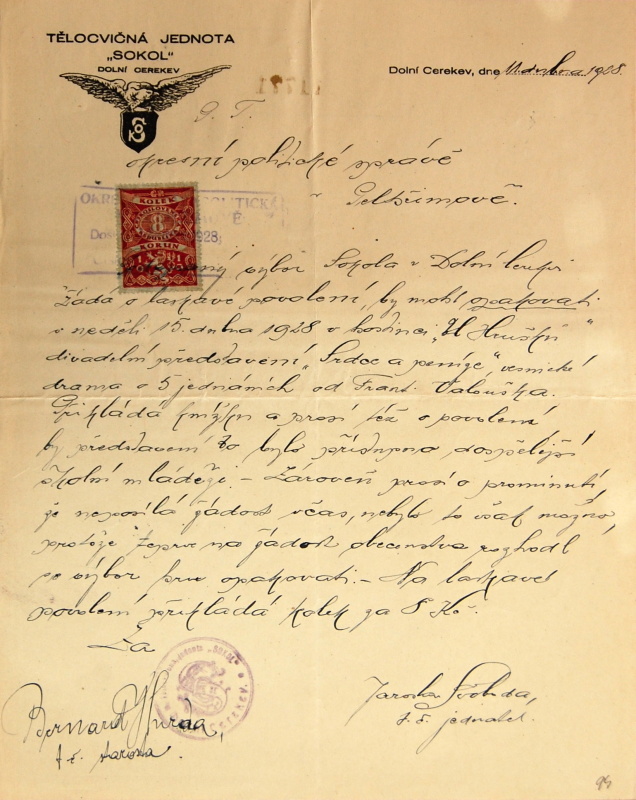 TĚLOCVIČNÁ JEDNOTA
„SOKOL"
DOLNÍ CEREKEV
Dolní Cerekev, dne 11. dubna 1928.
P. T.
okresní politické správě
v Pelhřimově.
KOLEK
8
KORUN
1928
výbor Sokola v Dolní Cerekvi
žádá o laskavé povolení, by mohl opakovati
v neděli 15. dubna 1928 v hostinci „U Hrušků"
divadelní představení „Srdce a peníze", vesnické
drama o 5 jednáních od Frant. Valouška.
Přikládá knížku a prosí též o povolení
by představení to bylo přístupno dospělejší
školní mládeži. - Zároveň prosí o prominutí,
že neposílá žádost včas, nebylo to však možno,
protože teprve na žádost obecenstva rozhodl
se výbor hru opakovati. - Na laskavé
povolení přikládá kolek za 8 Kč.
Za
Jaroslav Svoboda,
t. č. jednatel.
Bernard
t. č. starosta.